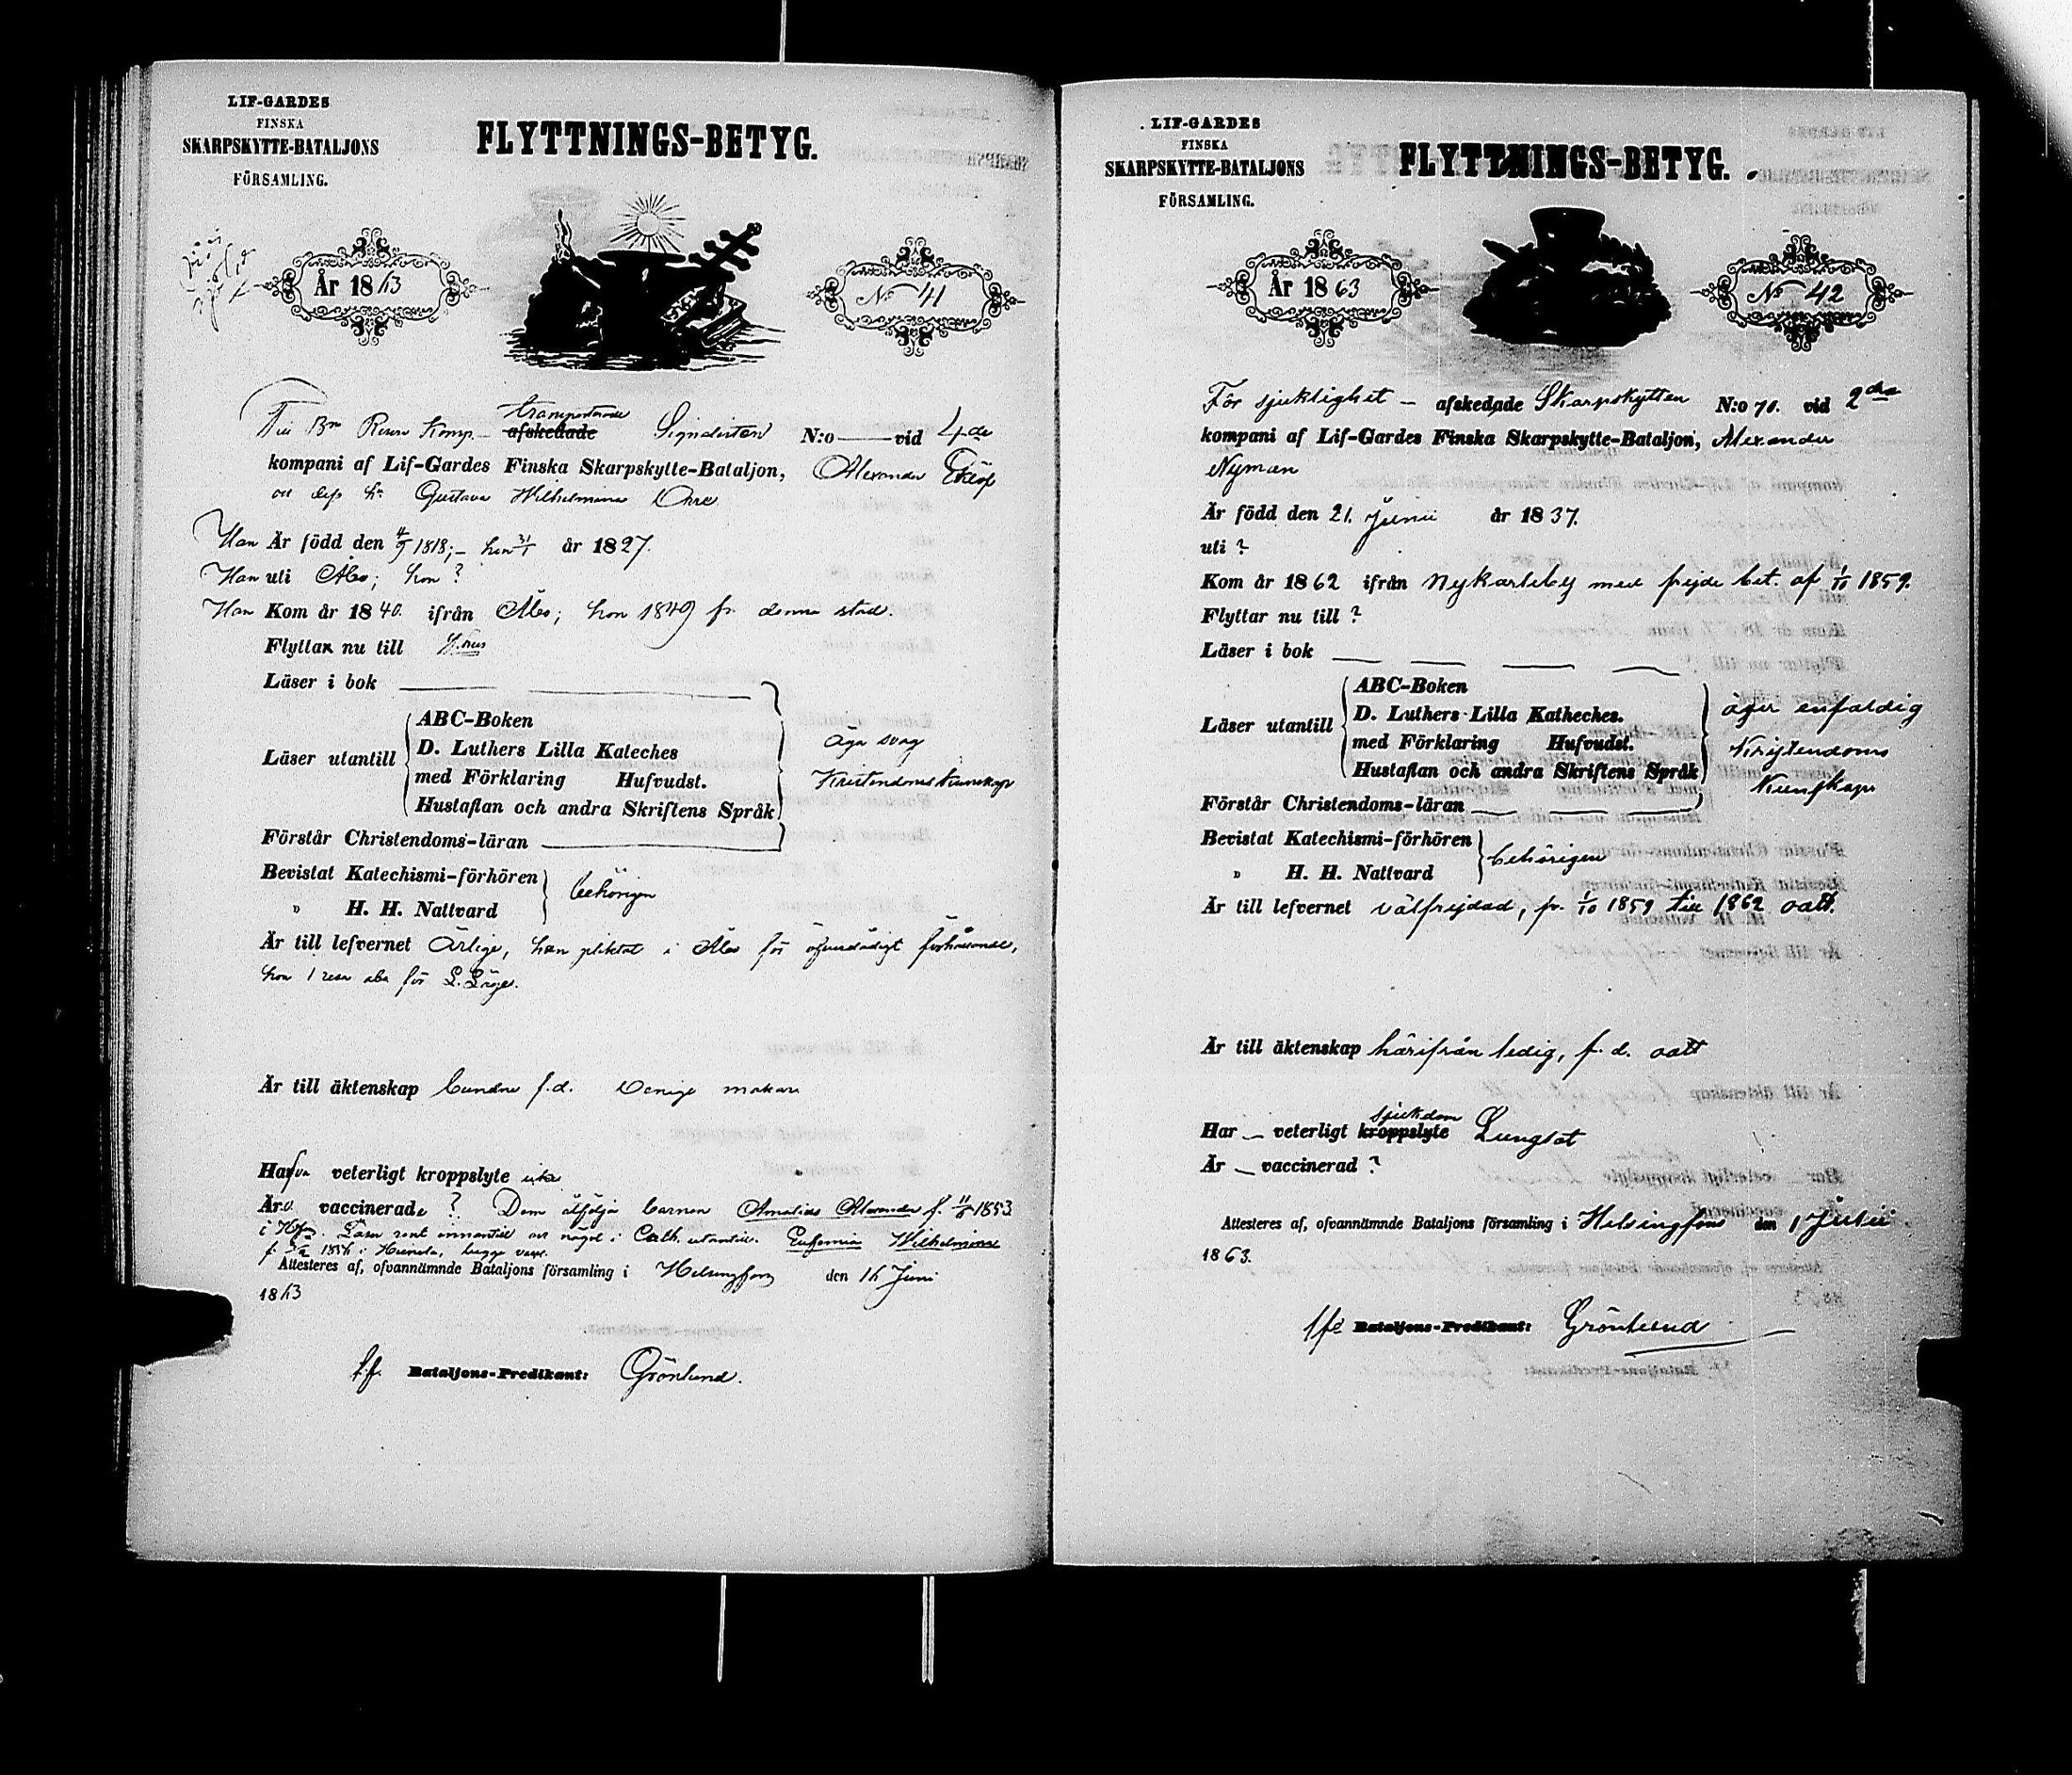 LIF-GARDES
FINSKA
SKARPSKYTTE-BATALJONS
FÖRSAMLING.
FLYTTNINGS-BETYG.
År 1863
No 41
Till Bns Reserv Komp. transporterade
afskedade Signalisten N:o — vid 4de
kompani af Lif-Gardes Finska Skarpskytte-Bataljon, Alexander
Gustava Wilhelmina
Han Är född den 1818; hon 31/1 år 1827.
Han uti Åbo; hon ?
Han Kom år 1840. ifrån Åbo; hon 1849 fr. denna stad.
Flyttar nu till
Läser i bok
Läser utantill
ABC-Boken
D. Luthers Lilla Kateches
med Förklaring Hufvudst.
Hustaflan och andra Skriftens Språk
äga svag
Kristendomskunskap
Förstår Christendoms-läran
Bevistat Katechismi-förhören
" H. H. Nattvard
behörigen
Är till lefvernet ärlige, han pliktat i Åbo för förhållande,
hon 1 resa för L. Läge.
Är till äktenskap bundne f.d. makar
Hafva veterligt kroppslyte icke
Äro vaccinerade ? Dem åtfölja barnen Alexander f. 1853
i Hfrs. Läser rent innantill och något i Cath. utantill. Eufemia Wilhelmina
f. 1856 i Heinola, begge vacc.
Attesteres af, ofvannämnde Bataljons församling i Helsingfors den 16 Juni
1863
t.f. Bataljons-Predikant: Grönlund.
LIF-GARDES
FINSKA
SKARPSKYTTE-BATALJONS
FÖRSAMLING.
FLYTTNINGS-BETYG.
År 1863
No 42
För sjuklighet — afskedade Skarpskytten N:o 71. vid 2dra
kompani af Lif-Gardes Finska Skarpskytte-Bataljon, Alexander
Nyman
Är född den 21. Junii år 1837.
uti ?
Kom år 1862 ifrån Nykarleby med frejde bet. af 1/10 1859.
Flyttar nu till ?
Läser i bok
Läser utantill
ABC-Boken
D. Luthers Lilla Katheches.
med Förklaring Hufvudst.
Hustaflan och andra Skriftens Språk
äger enfaldig
Kristendoms
Kunskap
Förstår Christendoms-läran
Bevistat Katechismi-förhören
" H. H. Nattvard
behörigen
Är till lefvernet välfrejdad, fr. 1/10 1859 till 1862 oatt.
Är till äktenskap härifrån ledig, f. d. oatt
sjukdom
Har — veterligt kroppslyte Lungsot
Är — vaccinerad ?
Attesteres af, ofvannämnde Bataljons församling i Helsingfors den 1 Julii
1863.
Bataljons-Predikant: Grönlund